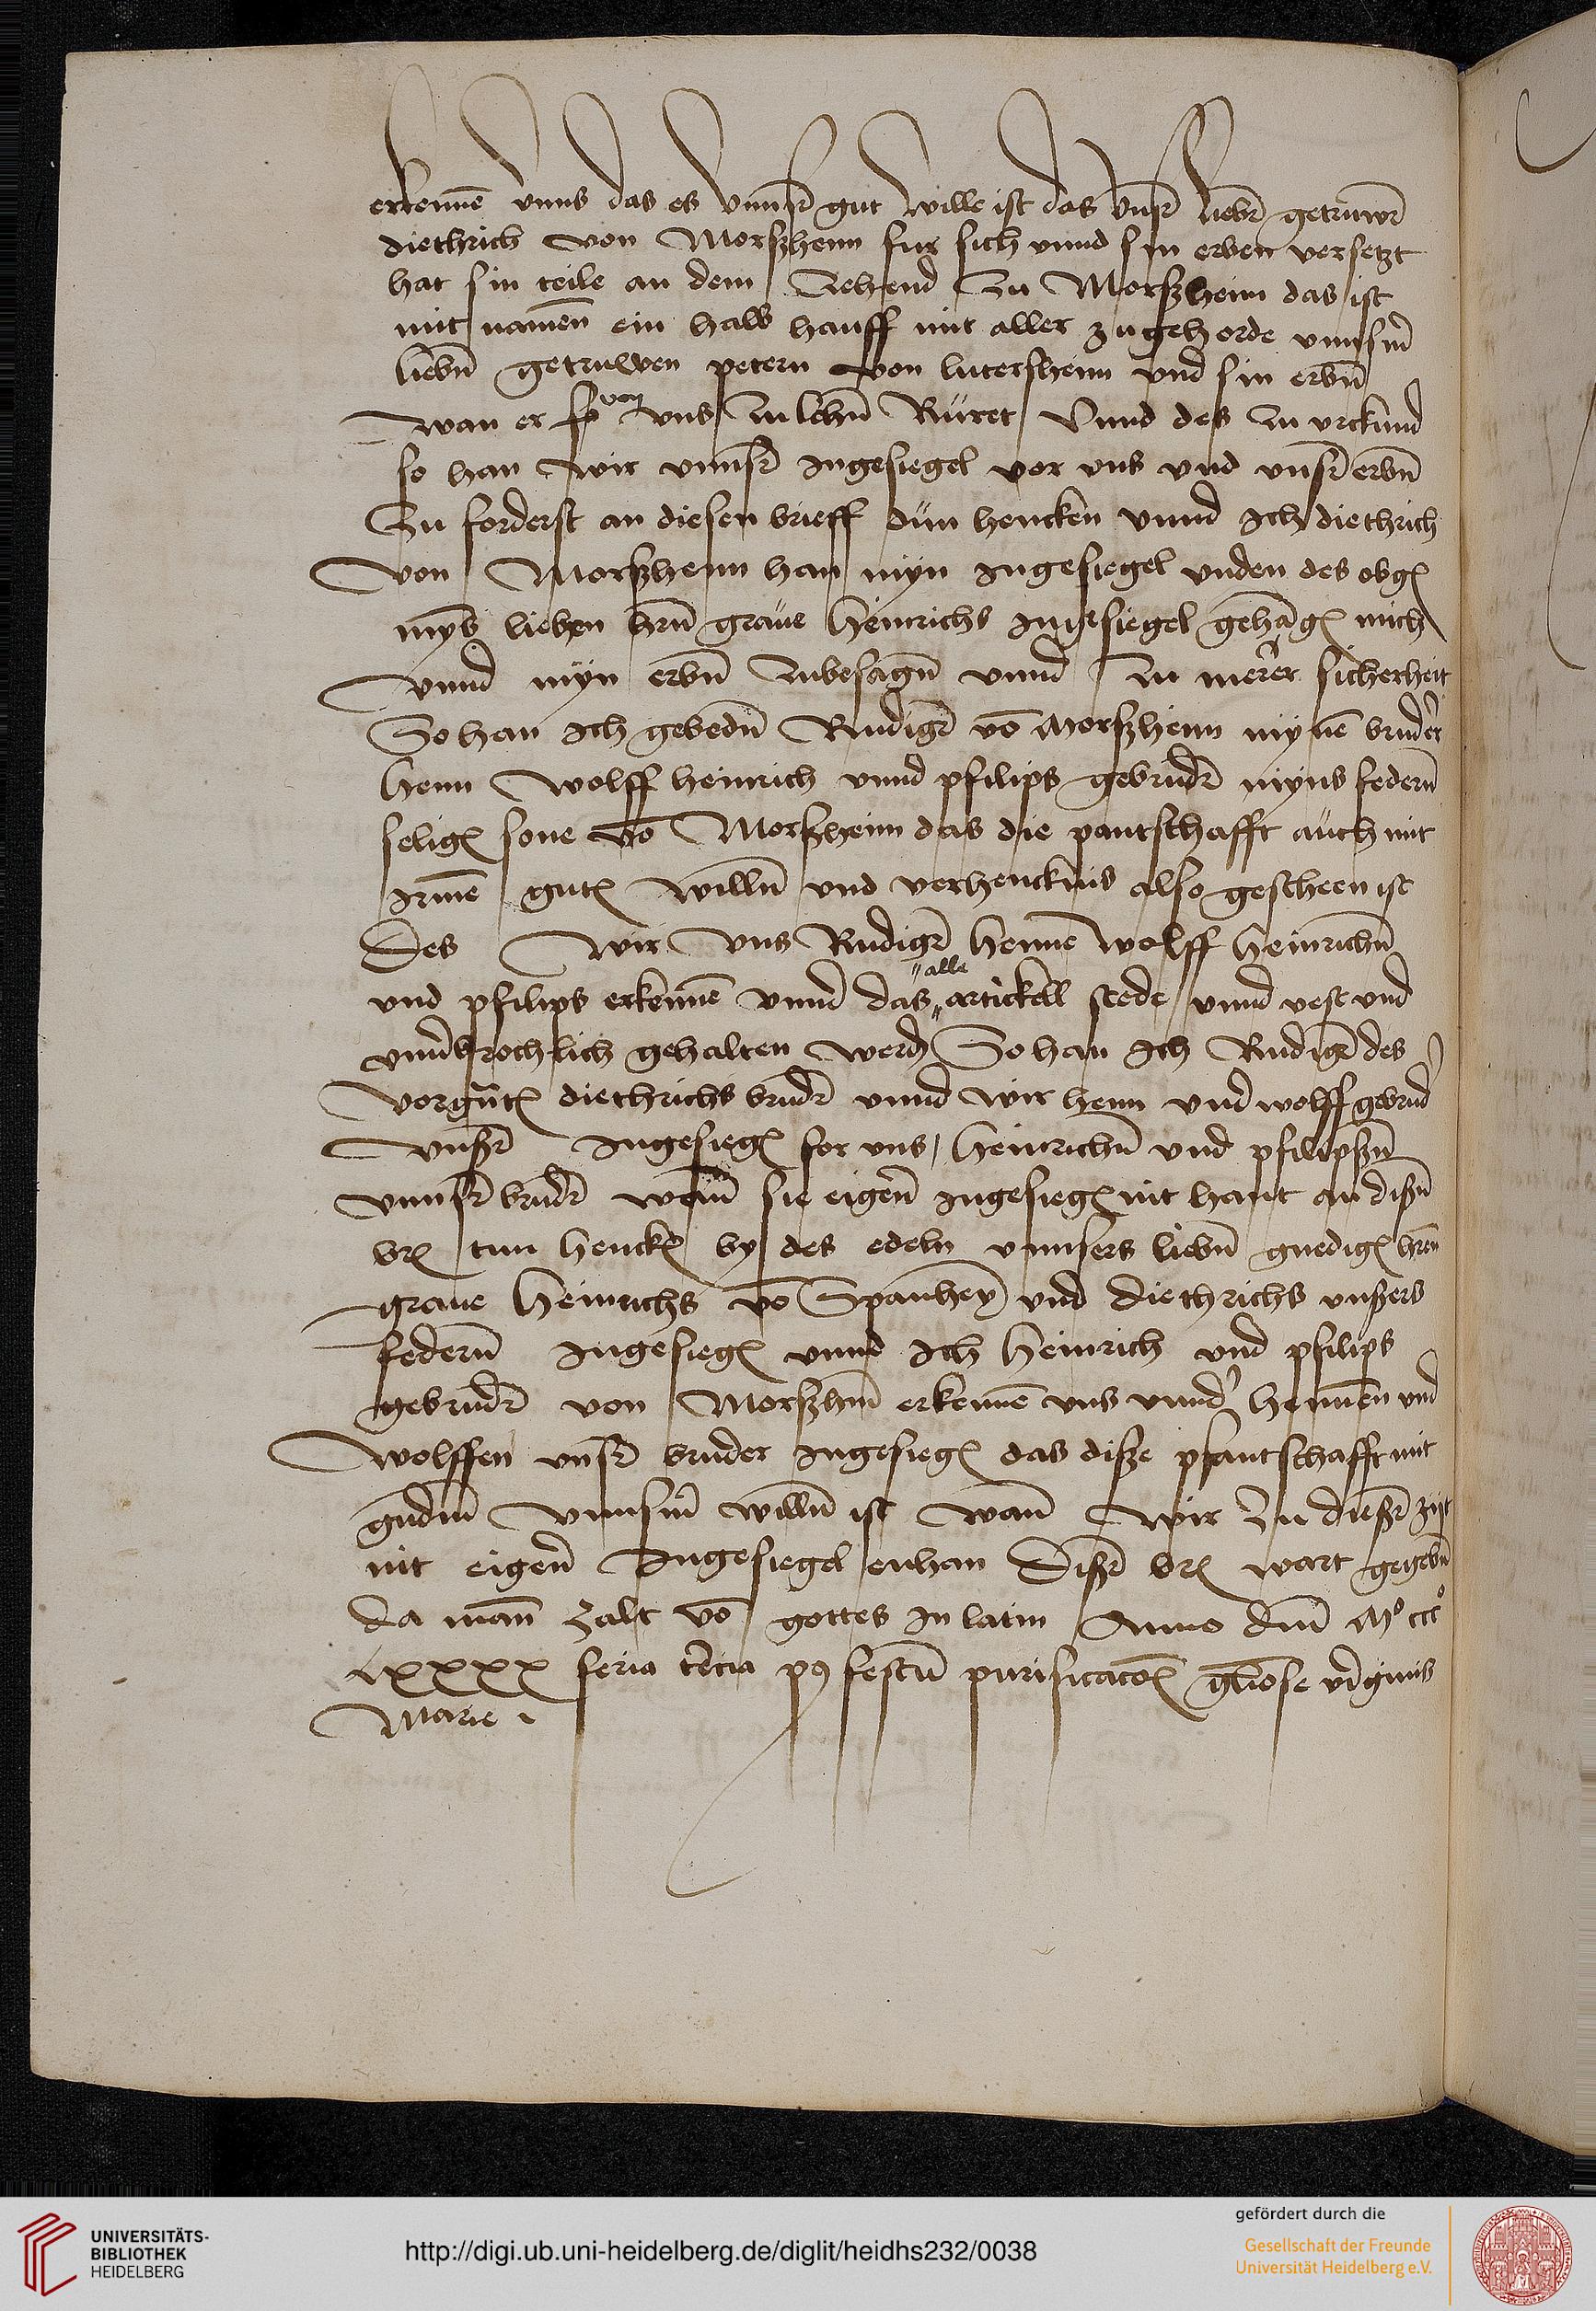 erkennē unns das es unnsr̄ gut wille ist das unsr̄ liebr̄ getruwr̄
diethrich von Morszhenn fur sich unnd sin erben versetzt
hat sin teile an dem zehend zu Morszheim das ist
mit namen̄ ein halb hauff mit aller zugehorde unnsm̄
liebn̄ getruwen petern von lutersheim und sin erbn̄
wan er so von uns zu lehn̄ Rüret Unnd des zu urckund
so han wir unnsr̄ ingesiegel vor uns und unsr̄ erbn̄
Zu forderst an diesen brieff dün hencken unnd Ich diethrich
von Morszhenn han myn ingesiegel unden des obgn̄
myns lieben hrn̄ graue Heinrichs ingesiegel gehangn̄ mich
unnd myn erbn̄ zubesagn̄ unnd zu merer sicherheit
So han Ich gebedn̄ Rudigr̄ vō Morszhenn mynē bruder
Henn Wolff heinrich unnd philips gebrudr̄ myns federn̄
selign̄ sone vō Morszheim das die pantschafft auch mit
irme gutn̄ willn̄ und verhencknis also gescheen ist
Des wir uns Rudigr̄ Henne wolff Heinrichn̄
und philips erkennē unnd das alle artickell stede unnd vest und
unūbrochlich gehalten werdn̄ So han Ich Rudigr̄ des
vorgn̄tn̄ diethrichs brudr̄ unnd wir henn und wolff gebrud̉
unszr̄ Ingesiegn̄ for uns / Heinrichn̄ und philipszn̄
unnsr̄ brudr̄ wann̄ sie eigen̄ ingesiegn̄ nit hant an diszn̄
brn̄ tun henckn̄ by des edeln unnsers liebn̄ gnedign̄ hren̄
graue Heinrichs vō Spanheyn̄ und diethrichs unszers
federn̄ Ingesiegn̄ unnd Ich Heinrich und philips
gebrudr̄ von Morszhm̄ erkennē uns unnd̉ hennen und
wolffen unsr̄ bruder ingesiegn̄ das disze pfantschafft mit
gudm̄ unnsm̄ willn̄ ist wan̄ wir zu dieszr̄ zijt
nit eigen̄ Ingesiegel enhan Diszr̄ brn̄ wart gegebn̄
da man̄ zalt vō gottes In latin Anno dn̄i Mº cccº
lxxxx feria tercia pꝰ festū purificacōn̄ gliose virginis
Marie
UNIVERSITÄTS-
BIBLIOTHEK
HEIDELBERG
http://digi.ub.uni-heidelberg.de/diglit/heidhs232/0038
gefördert durch die
Gesellschaft der Freunde
Universität Heidelberg e.V.